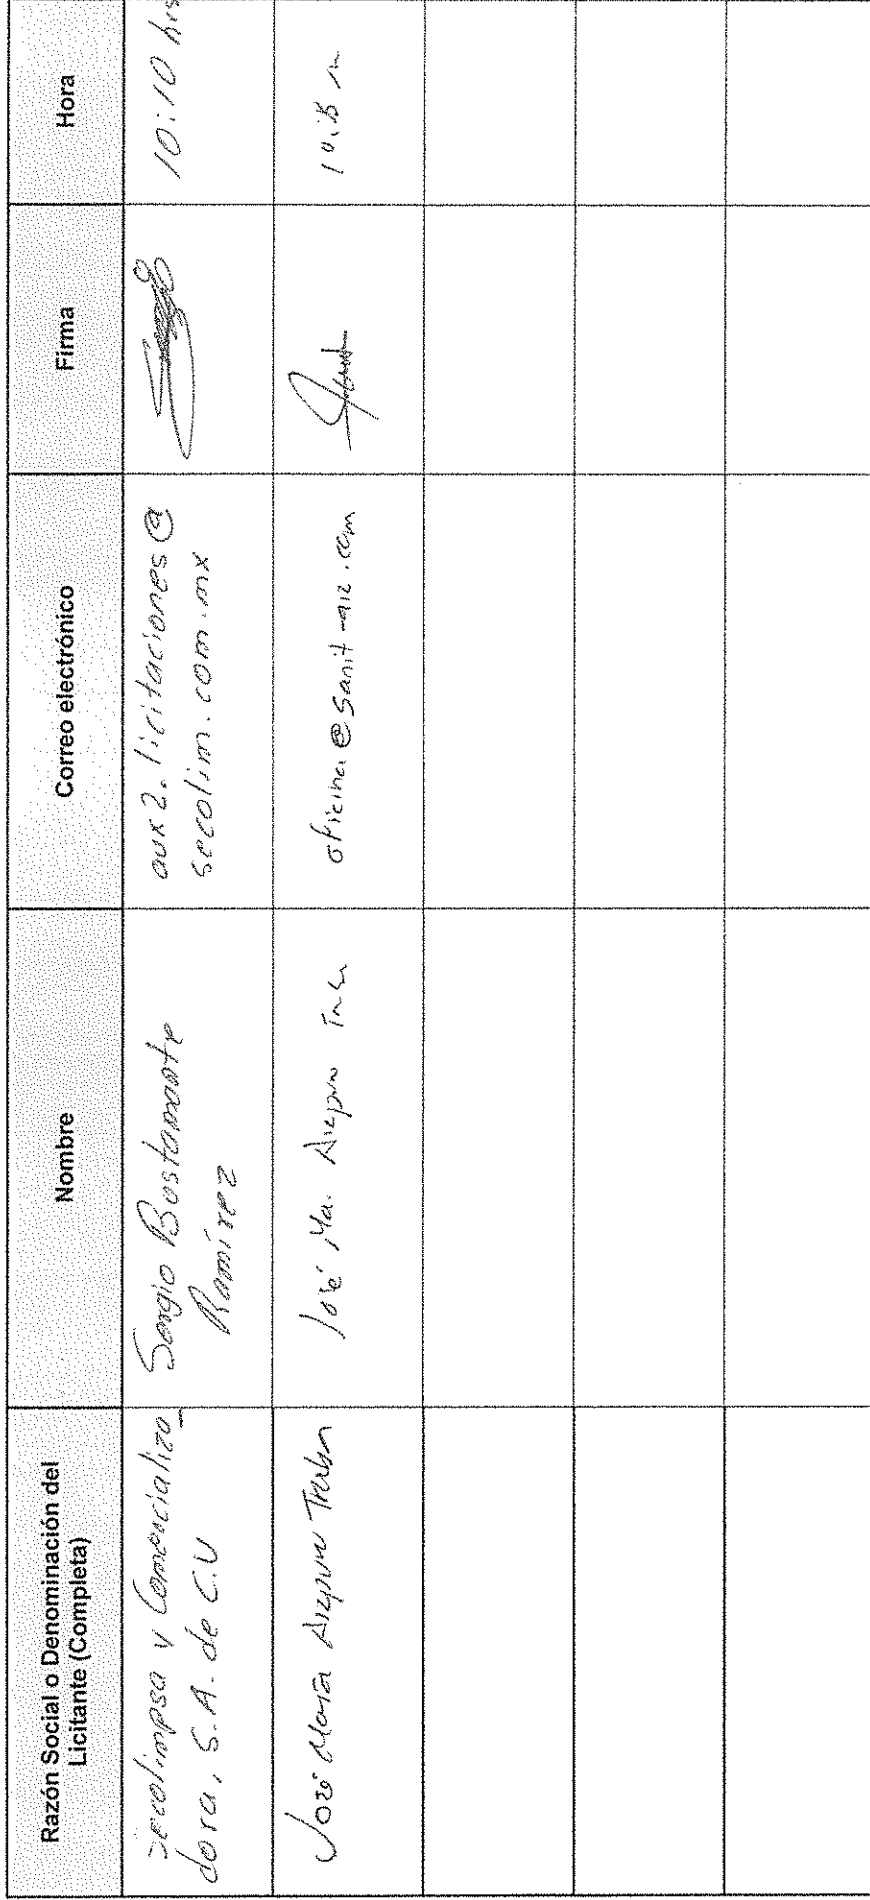 Razón Social o Denominación del
Licitante (Completa)
Nombre
Correo electrónico
Firma
Hora
Secolimpsa y Comercializa_
dora, S.A. de C.V
Sergio Bustamante
Ramírez
aux2.licitaciones@
secolim.com.mx
10:10 hrs
José María
José Ma.
oficina@sanit-aiz.com